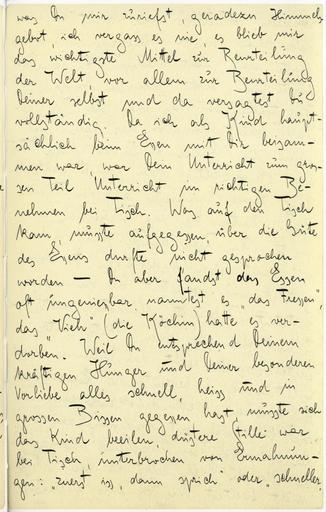 was Du mir zuriefst, geradezu Himmels-
gebot, ich vergass es nie, es blieb mir
das wichtigste Mittel zur Beurteilung
der Welt vor allem zur Beurteilung
Deiner selbst und da versagtest Du
vollständig. Da ich als Kind haupt-
sächlich beim Essen mit Dir beisam-
men war, war Dein Unterricht zum gros-
sen Teil Unterricht im richtigen Be-
nehmen bei Tisch. Was auf den Tisch
kam, musste aufgegessen, über die Güte
des Essens durfte nicht gesprochen
worden – Du aber fandst das Essen
oft ungeniessbar nanntest es „das Fressen",
das „Vieh" (die Köchin) hatte es ver-
dorben. Weil Du entsprechend Deinem
kräftigen Hunger und Deiner besonderen
Vorliebe alles schnell, heiss und in
grossen Bissen gegessen hast, musste sich
das Kind beeilen, düstere Stille war
bei Tisch, unterbrochen von Ermahnun-
gen: „zuerst iss, dann sprich" oder „schneller,